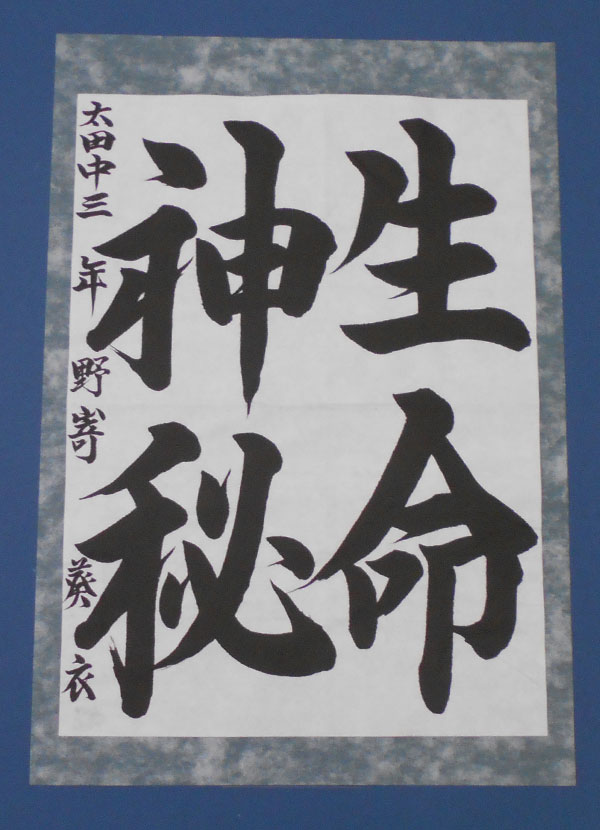 生命
神秘
太田中三年野嵜葵衣